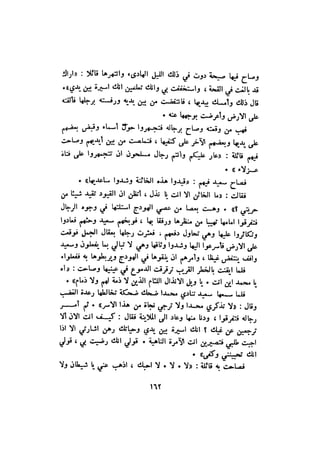 وصاح فيها صيحة دوت في ذلك الليل الهادىء وانتهرها قائلا : « أراك
قد بالغت في القحة ، واستخففت بي وانك تعلمين انك اسيرة بين يدي » .
قال ذلك وأمسك بيدها ، فانتفضت من بين يديه ورفسته برجلها فألقته
على الارض وأعرضت بوجهها عنه .
فهب من وقعته وصاح برجاله فتجمهروا حول أسماء وقبض بعضهم
على يديها وبعضهم الآخر على كتفيها ، فتملصت من بين أيديهم وصاحت
فيهم قائلة : « عار عليكم وأنتم رجال مسلحون ان تتجمهروا على فتاة
عزلاء » .
فصاح سعيد فيهم : « قيدوا هذه الخائنة وشدوا ساعديها » .
فقالت : « ما الخائن الا انت يا نذل ، أتظن ان القيود تقيد شيئا من
حريتي ؟ » . وهمت بعصا من عصي الهودج استلتها في وجوه الرجال
فتفرقوا امامها تهيبا من منظرها ورفقا بها ، فوبخهم سعيد وحثهم فعادوا
وتكاثروا عليها وهي تحاول دفعهم ، فعثرت رجلها بعقال الجمل فوقعت
على الارض فأسرعوا اليها وشدوا وثاقها وهي لا تبالي بما يفعلون وسعيد
واقف ينتفض غيظا ، وأمرهم ان يلقوها في الهودج ويربطوها به ففعلوا .
فلما ايقنت بالخطر القريب ترقرقت الدموع في عينيها وصاحت : « اه
يا محمد اين انت . يا ويل الانذال اللئام الذين لا ذمة لهم ولا ذمام » .
فلما سمعها سعيد تنادي محمدا ضحك ضحكة تخالطها رعدة الغضب
وقال : « لا تذكري محمدا ولا ترجي نجاة من هذا الاسر » . ثم أمسر
رجاله فتفرقوا ، ودنا منها وعاد الى الملاينة فقال : « كيف انت الان ألا
ترجعين عن غيك ؟ انك اسيرة بين يدي وحياتك رهن اشارتي الا اذا
اجبت طلبي فتصيرين انت الآمرة الناهية . قولي انك رضيت بي ، قولي
انك تحبينني وكفى » .
فصاحت به قائلة : « لا . لا . لا احبك ، اذهب عني يا شيطان ولا
١٦٢